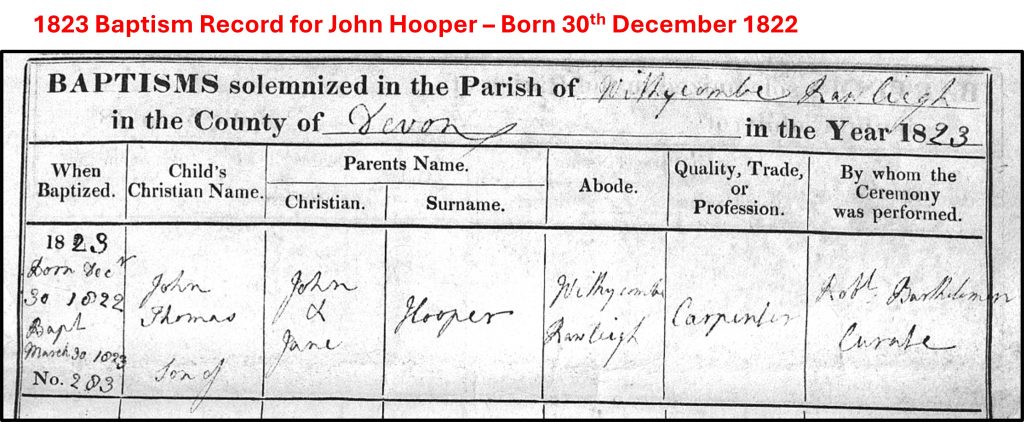 1823 Baptism Record for John Hooper – Born 30th December 1822
BAPTISMS solemnized in the Parish of Withycombe Rawleigh
in the County of Devon in the Year 1823
When Baptized.
Child's Christian Name.
Parents Name.
Christian.
Surname.
Abode.
Quality, Trade, or Profession.
By whom the Ceremony was performed.
1823
Born Decr
30 1822
Bapt
March 30 1823
No. 283
John
Thomas
Son of
John
&
Jane
Hooper
Withycombe
Rawleigh
Carpenter
Robt. Bartholomew
Curate